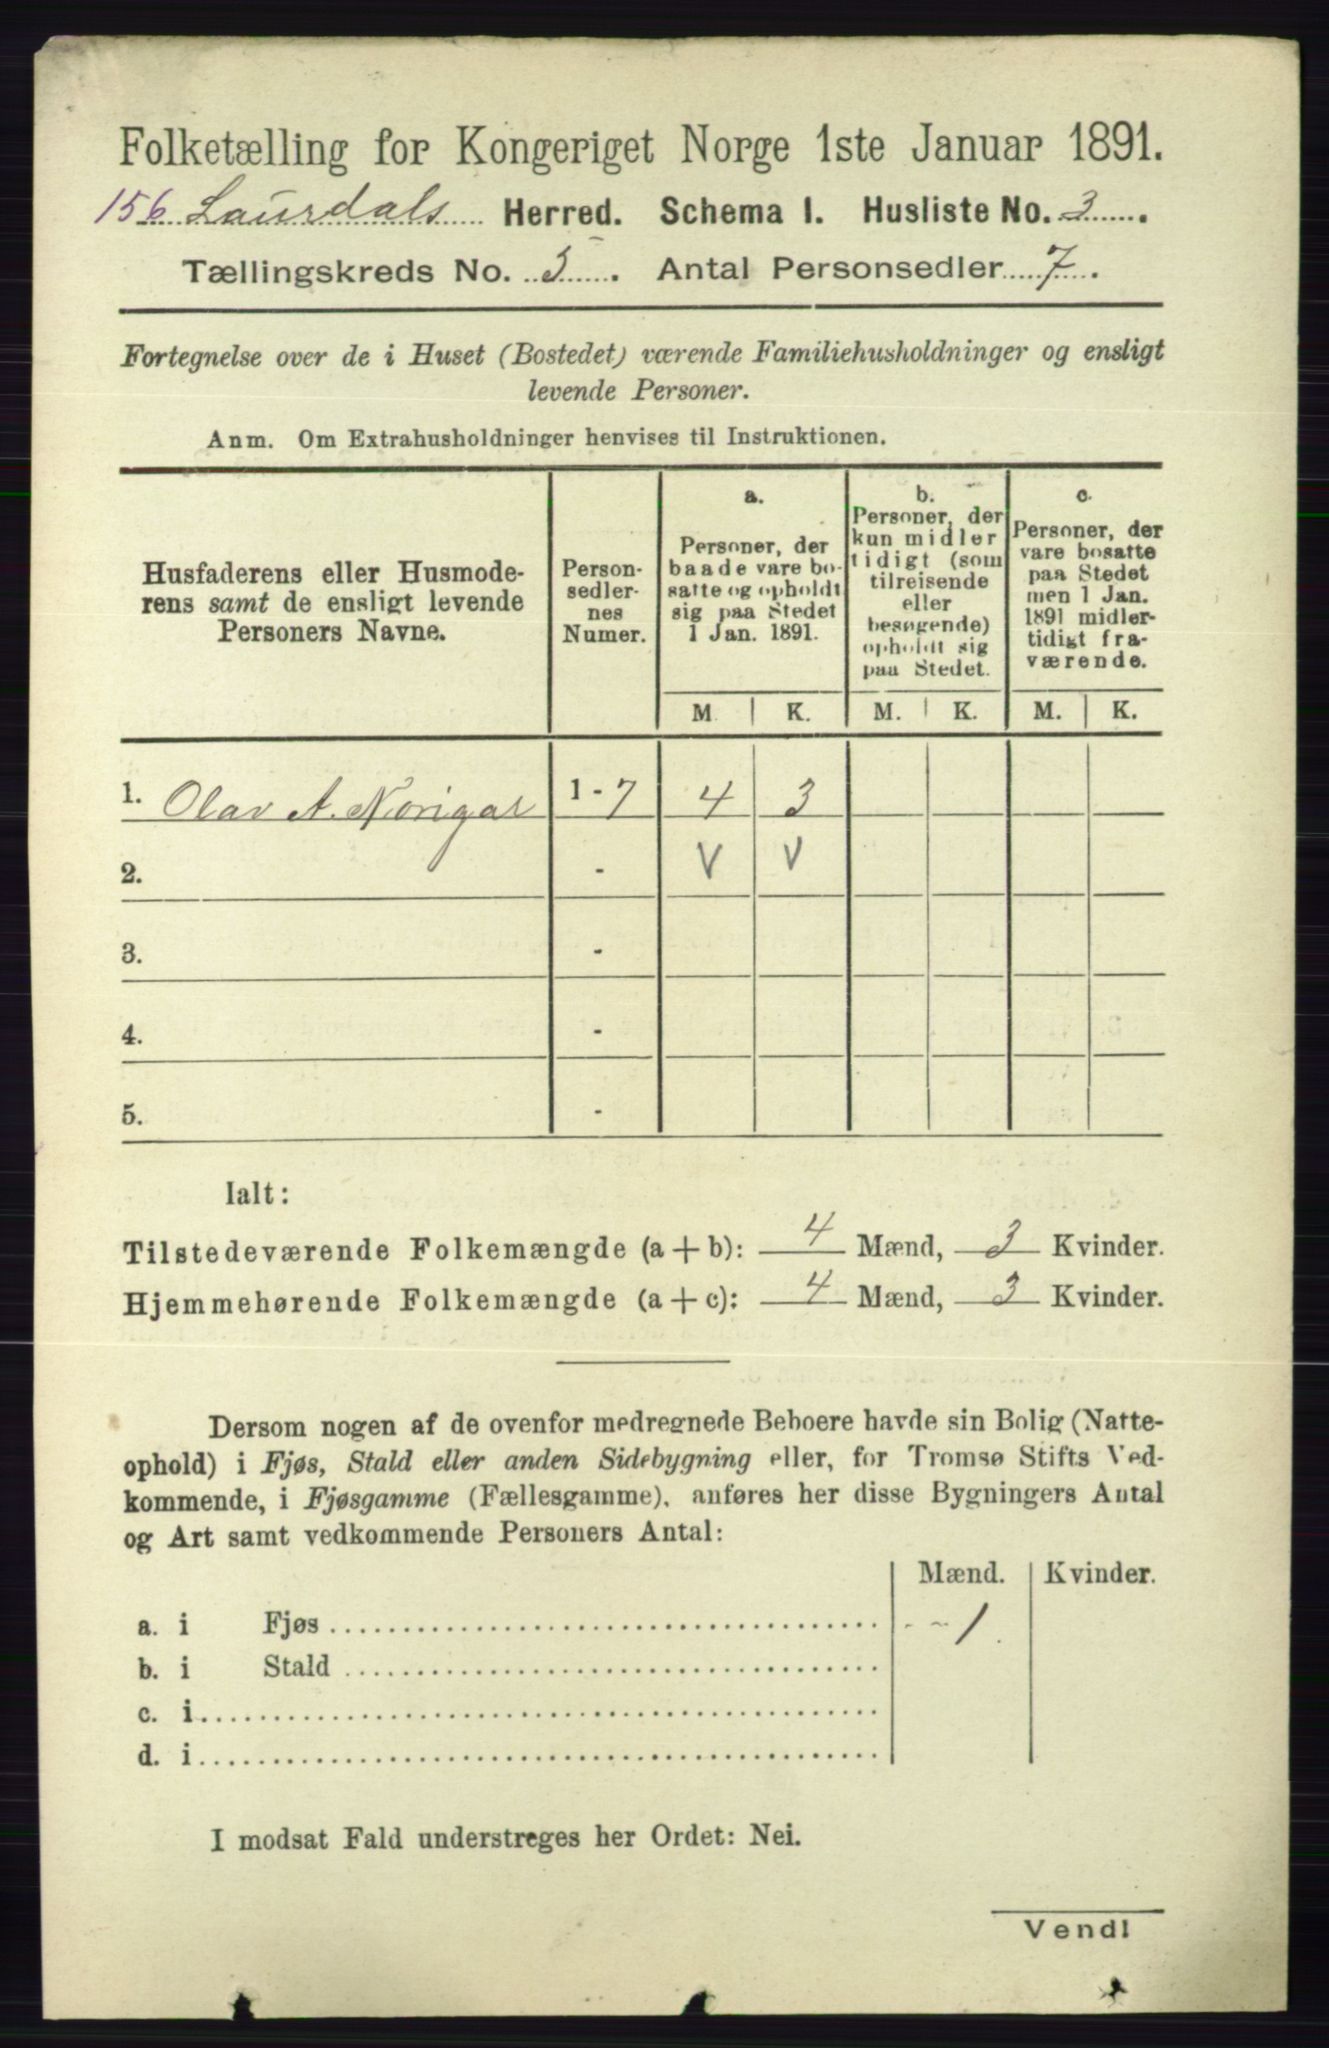 Folketælling for Kongeriget Norge 1ste Januar 1891.
156 Laurdals Herred. Schema I. Husliste No. 3.
Tællingskreds No. 5. Antal Personsedler 7.
Fortegnelse over de i Huset (Bostedet) værende Familiehusholdninger og ensligt
levende Personer.
Anm. Om Extrahusholdninger henvises til Instruktionen.
Husfaderens eller Husmode-
rens samt de ensligt levende
Personers Navne.
Person-
sedler-
nes
Numer.
a.
Personer, der
baade vare bo-
satte og opholdt
sig paa Stedet
1 Jan. 1891.
b.
Personer, der
kun midler
tidigt (som
tilreisende
eller
besøgende)
opholdt sig
paa Stedet.
c.
Personer, der
vare bosatte
paa Stedet
men 1 Jan.
1891 midler-
tidigt fra-
værende.
M. K. M. K. M. K.
1. Olav A. 1 - 7 4 3
2. - V V
3. -
4. -
5. -
Ialt:
Tilstedeværende Folkemængde (a + b): 4 Mænd, 3 Kvinder.
Hjemmehørende Folkemængde (a + c): 4 Mænd, 3 Kvinder.
Dersom nogen af de ovenfor medregnede Beboere havde sin Bolig (Natte-
ophold) i Fjøs, Stald eller anden Sidebygning eller, for Tromsø Stifts Ved-
kommende, i Fjøsgamme (Fællesgamme), anføres her disse Bygningers Antal
og Art samt vedkommende Personers Antal:
Mænd. Kvinder.
a. i Fjøs - - 1
b. i Stald
c. i
d. i
I modsat Fald understreges her Ordet: Nei.
Vend!